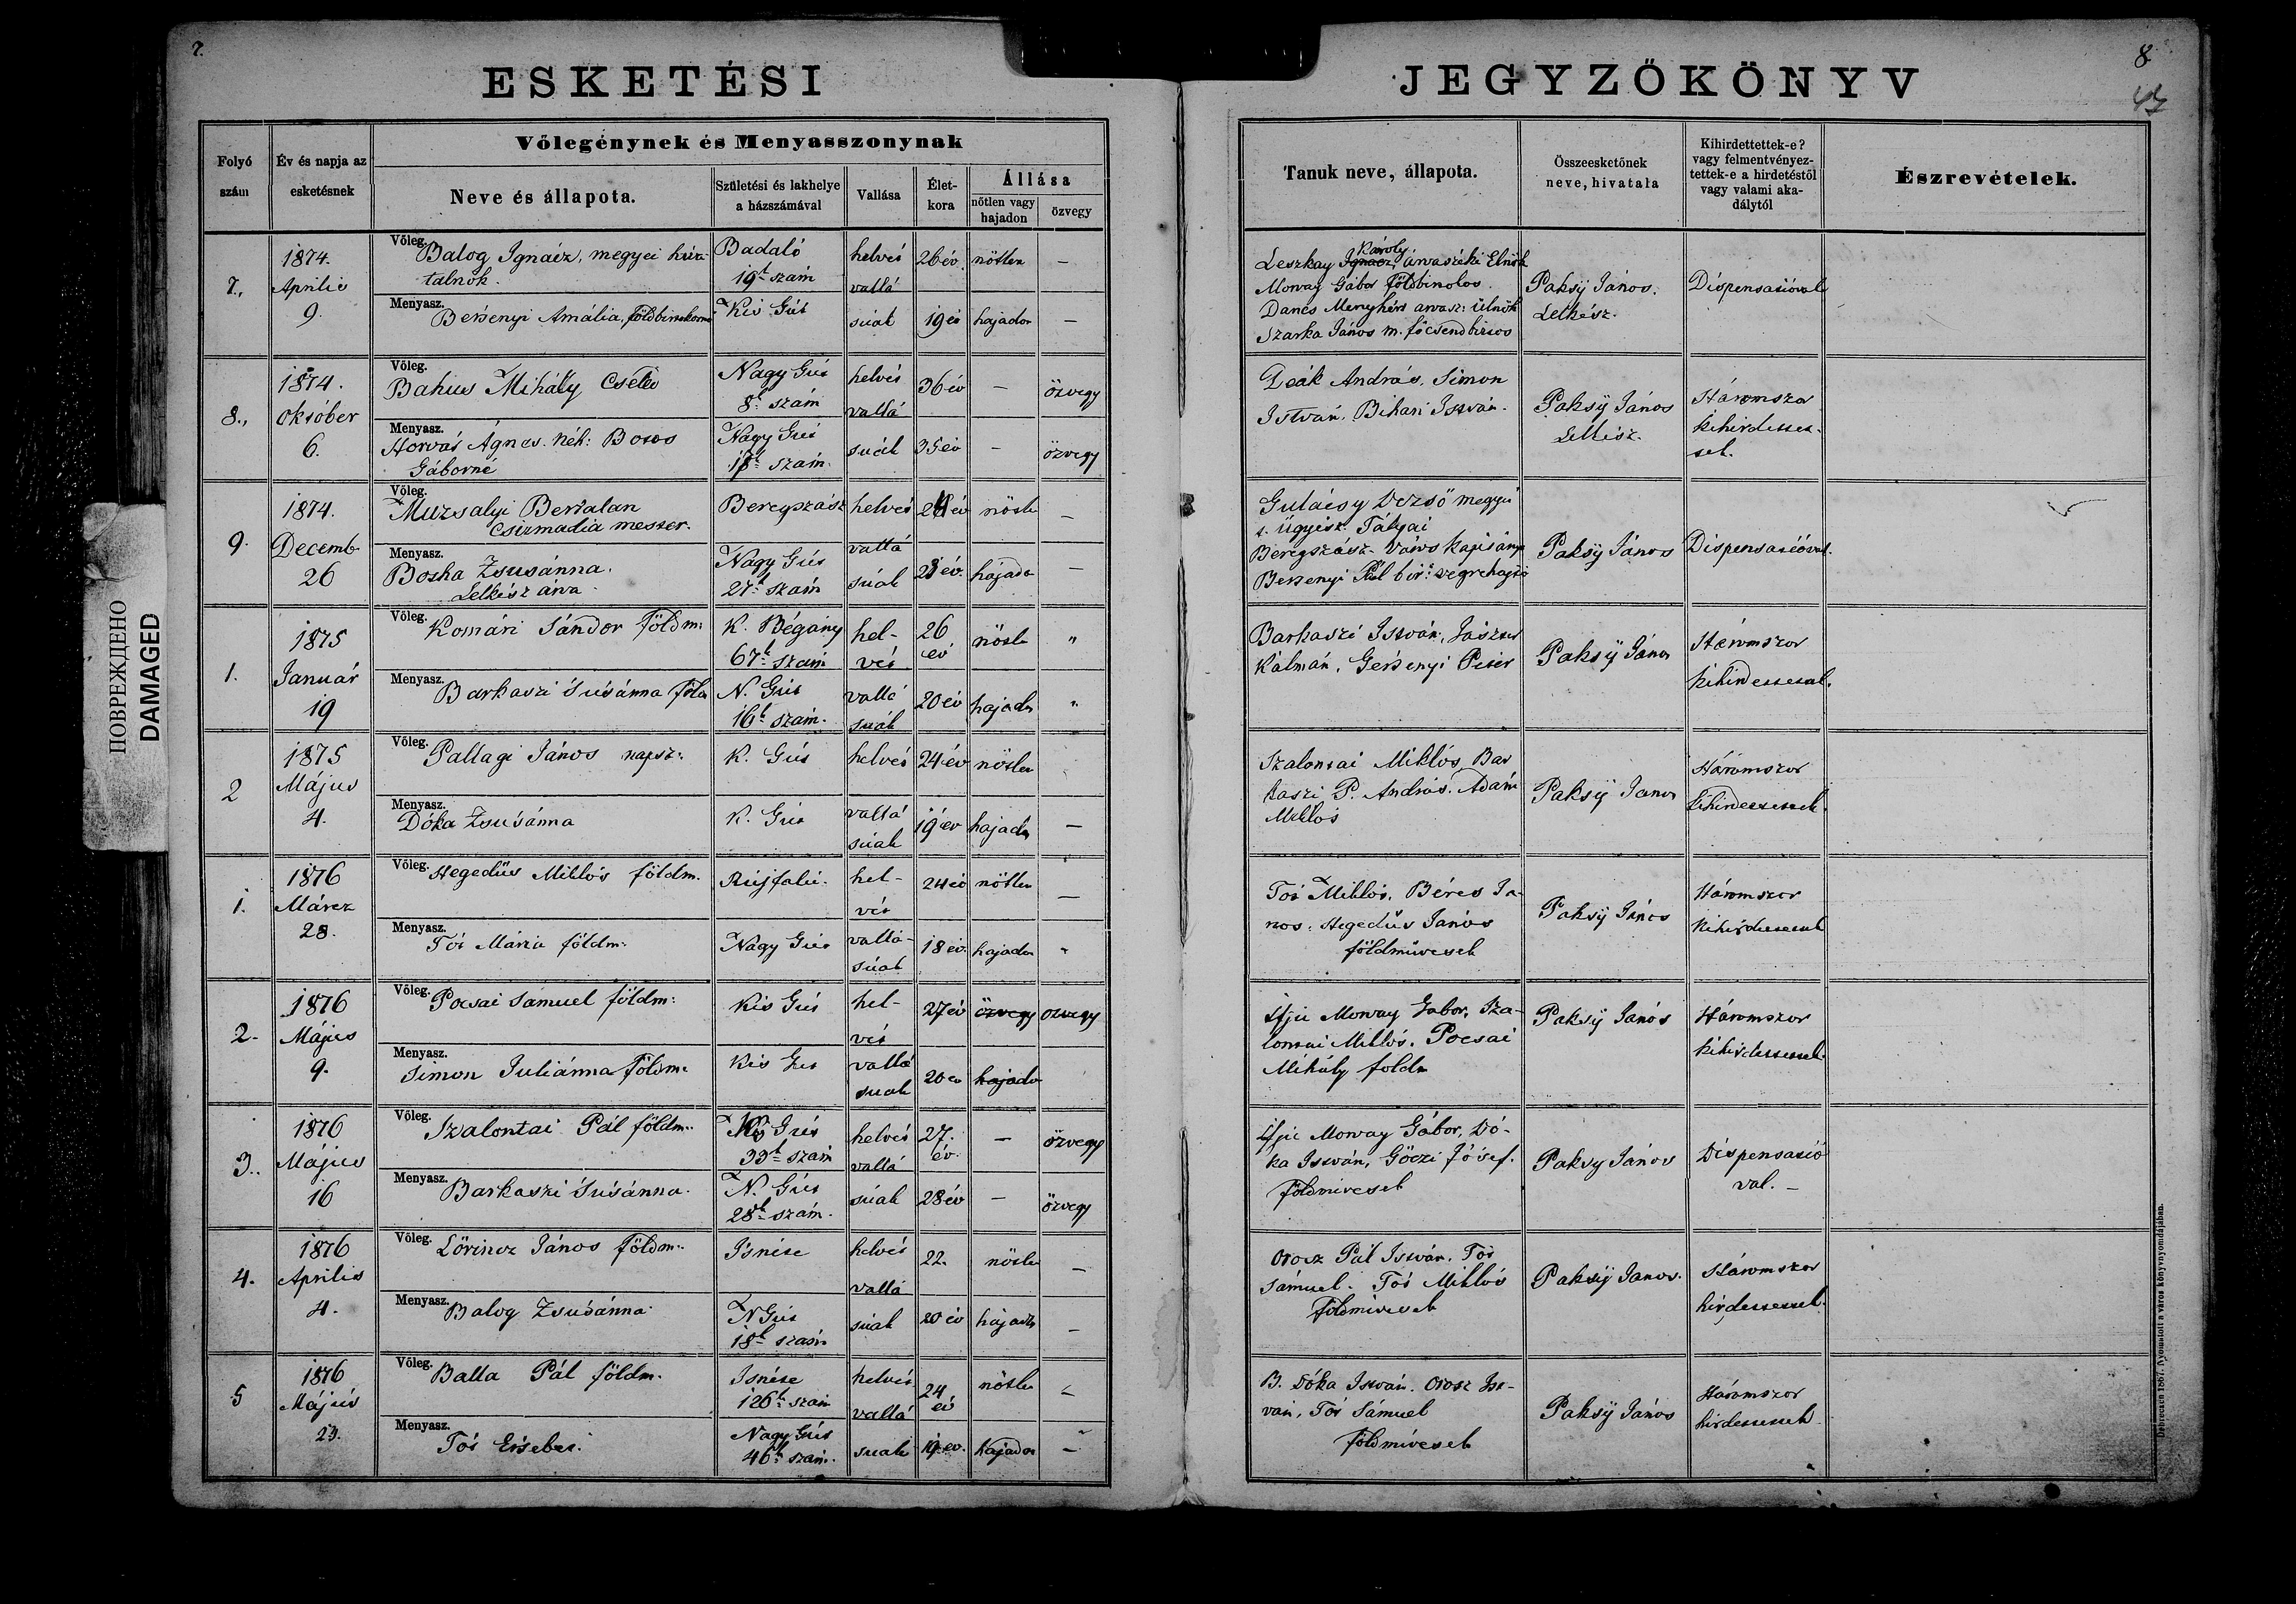 7.
ESKETÉSI
Folyó szám
Év és napja az esketésnek
Vőlegénynek és Menyasszonynak
Neve és állapota.
Születési és lakhelye a házszámával
Vallása
Élet-kora
Állása
nőtlen vagy hajadon
özvegy
7.,
1874. Aprilis 9.
Vőleg. Balog Ignácz, megyei hiva-
talnok.
Badaló
19k szám
helvét
vallá
26 év
nőtlen
—
Menyasz. Bersenyi Amália, földbirtokosnő
Kis Gút
súak
19 év
hajadon
—
8.,
1874. Október 6.
Vőleg. Bahus Mihály Cseléd
Nagy Gút
8k szám
helvét
vallá
36 év
—
özvegy
Menyasz. Horvát Ágnes. Néh: Boros
Gáborné
Nagy Gút
szám.
súak
35 év
—
özvegy
9.
1874. Decemb. 26
Vőleg. Muzsalyi Bertalan
Csizmadia mester.
Beregszász
helvét
vallá
év
nőtlen
—
Menyasz. Bosha Zsusánna.
Lelkész árva.
Nagy Gút
27k szám
súak
23 év.
hajadon
—
1.
1875 Január 19
Vőleg. Komári Sándor földm:
K. Bégány
67k szám
hel-
vét
26
év
nőtlen
"
Menyasz. Barkaszi Susánna földm
N. Gút
16k szám.
vallá
súak
20 év
hajadon
"
2
1875 Május 4.
Vőleg. Pallagi János napsz:
K. Gút
helvét
24 év
nőtlen
Menyasz. Dóka Zsusánna
K. Gút
vallá
súak
19 év
hajadon
—
1.
1876 Márcz 28.
Vőleg. Hegedüs Miklós földm.
hel-
vét
24 év
nőtlen
—
Menyasz. Tót Mária földm:
Nagy Gút
vallá-
súak
18 év.
hajadon
"
2.
1876 Május 9.
Vőleg. Pocsai Sámuel földm:
Kis Gút
hel-
vét
27 év
özvegy
özvegy
Menyasz. Simon Juliánna földm.
Kis Gut
vallá
suak
20 év
hajadon
3.
1876 Május 16
Vőleg. Szalontai Pál földm..
Gút
33k szám
helvét
vallá
27.
év.
—
özvegy
Menyasz. Barkaszi Susánna.
N. Gút
28k szám.
súak
28 év
—
özvegy
4.
1876 Aprilis 4.
Vőleg. Lörincz János földm..
Isnéte
helvét
vallá
22.
nőtlen
—
Menyasz. Balog Zsusánna.
N Gút
18k szám
súak
20 év
hajadon
—
5
1876 Május 23.
Vőleg. Balla Pál földm.
Isnéte
126k szám
helvét
vallá
24
év
nőtlen
—
Menyasz. Tót Ersebet.
Nagy Gút
46k szám.
suak
19 ev.
hajadon
—
8
JEGYZŐKÖNYV
Tanuk neve, állapota.
Összeesketőnek neve, hivatala
Kihirdettettek-e? vagy felmentvényez-tettek-e a hirdetéstől vagy valami aka-dálytól
Észrevételek.
Károly
Leszkay Ignácz, árvaszéki Elnök
Morvay Gábor földbirtokos.
Dancs Menyhért arvasz: ülnök
Szarka János m. főcsendbiztos
Paksÿ János.
Lelkész.
Dispensatióval
Deák András. Simon
István. Bihari István.
Paksÿ János
Lelkész.
Háromszor
kihirdettet-
tek.
Gulácsy Dezső megyei
t. ügyész. Tályai
Beregszász. város kapitánya
Bersenyi Pál bir: végrehajtó
Paksÿ János
Dispensatióval.
Barkaszi István, Jászter
Kálmán, Gersenyi Péter
Paksÿ János
Háromszor
kihirdettettek.
Szalontai Miklós, Bar
kaszi P. András. Adám
Miklós
Paksÿ János
Háromszor
kihirdettettek.
Tót Miklós. Béres Já-
nos. Hegedűs János
földmüvesek
Paksÿ János
Háromszor
kihirdettettek
ifju Morvay Gabor, Sza-
lontai Miklós. Pocsai
Mihály foldm
Paksÿ János
Háromszor
kihirdettettek.
ifju Morvay Gábor, Dó-
ka István, Göczi Jósef.
földmivesek
Paksy János
Dispensatió
val. —
Orosz Pál István. Tót
Sámuel. Tót Miklós
földmivesek
Paksÿ János.
Háromszor
hirdettettek.
B. Dóka István. Orosz Ist-
ván, Tót Sámuel
földmivesek
Paksÿ János
Háromszor
hirdettettek.
Debreczen 1867. Nyomatott a város könyvnyomdájában.
ПОВРЕЖДЕНО
DAMAGED